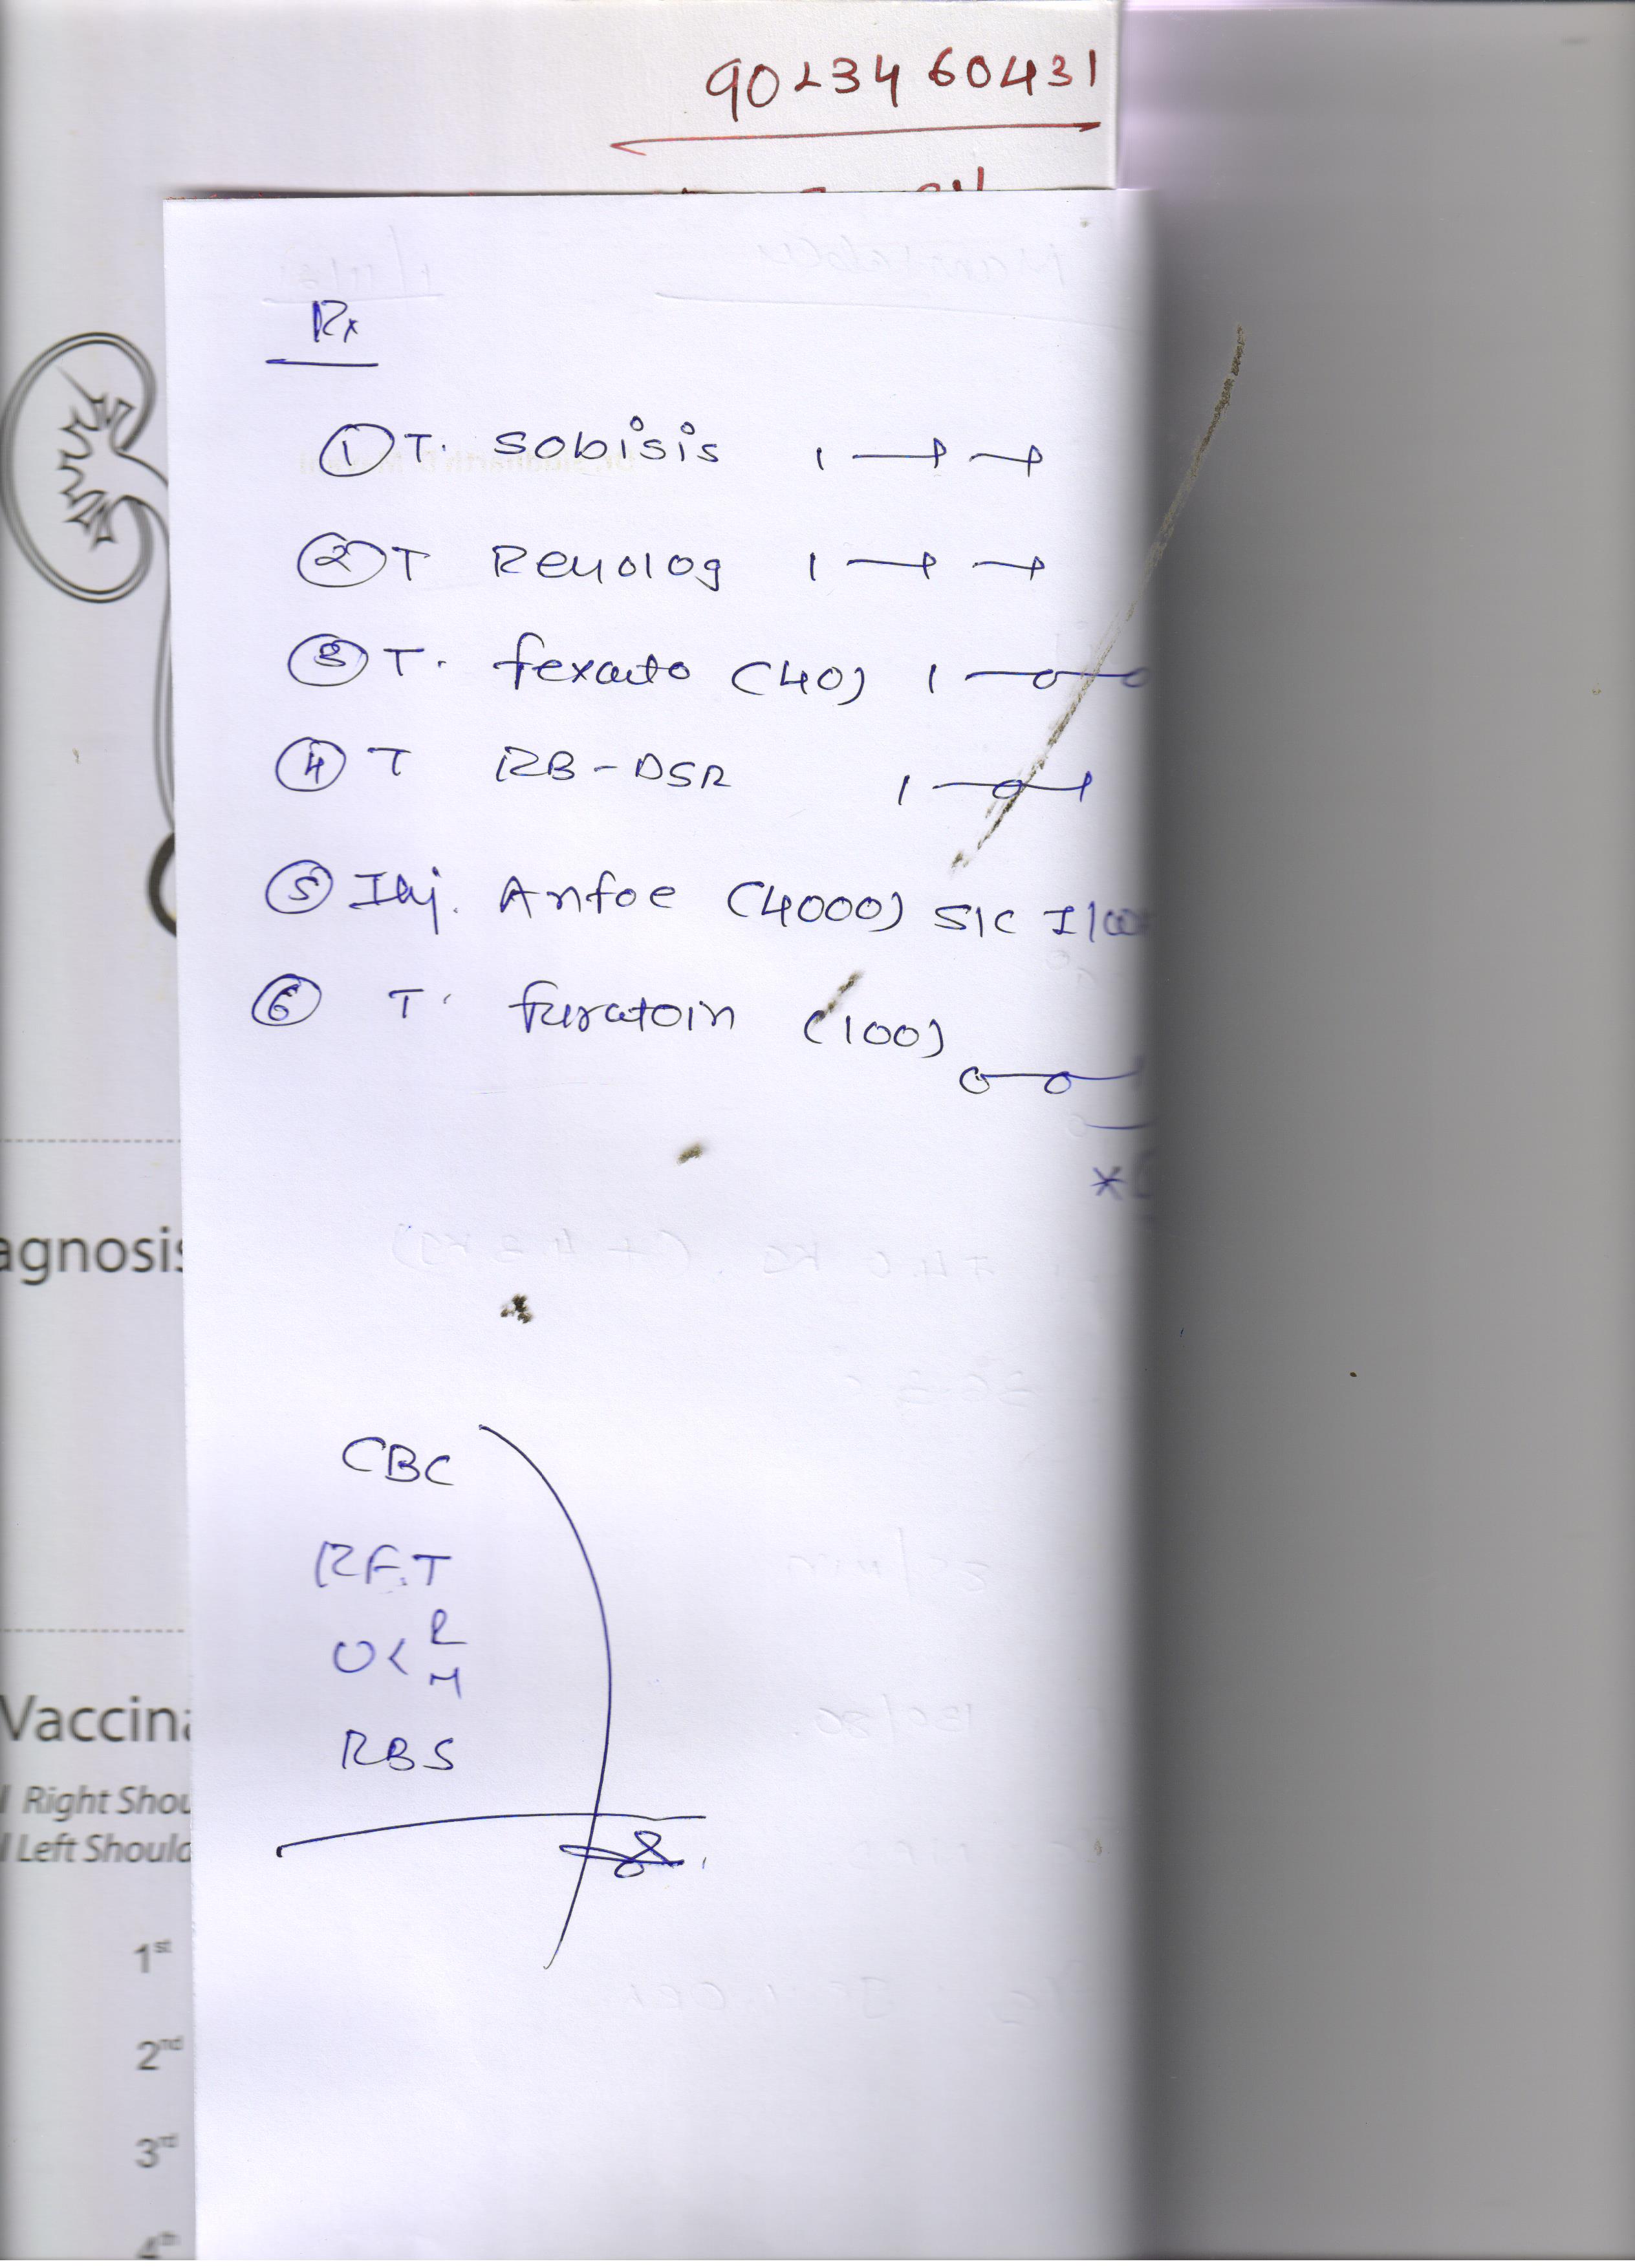 9023460431
Rx
① T. Sobisis 1—1—1
② T Renolog 1—1—1
③ T. fexauto (40) 1—0—0
④ T RB-DSR 1—0—1
⑤ Inj. Anfoe (4000) S/C
⑥ T. furatoin (100)
0—0—1
agnosis
CBC
RFT
U< R
M
Vaccina
RBS
Right Shou
Left Should
1st
2nd
3rd
4th